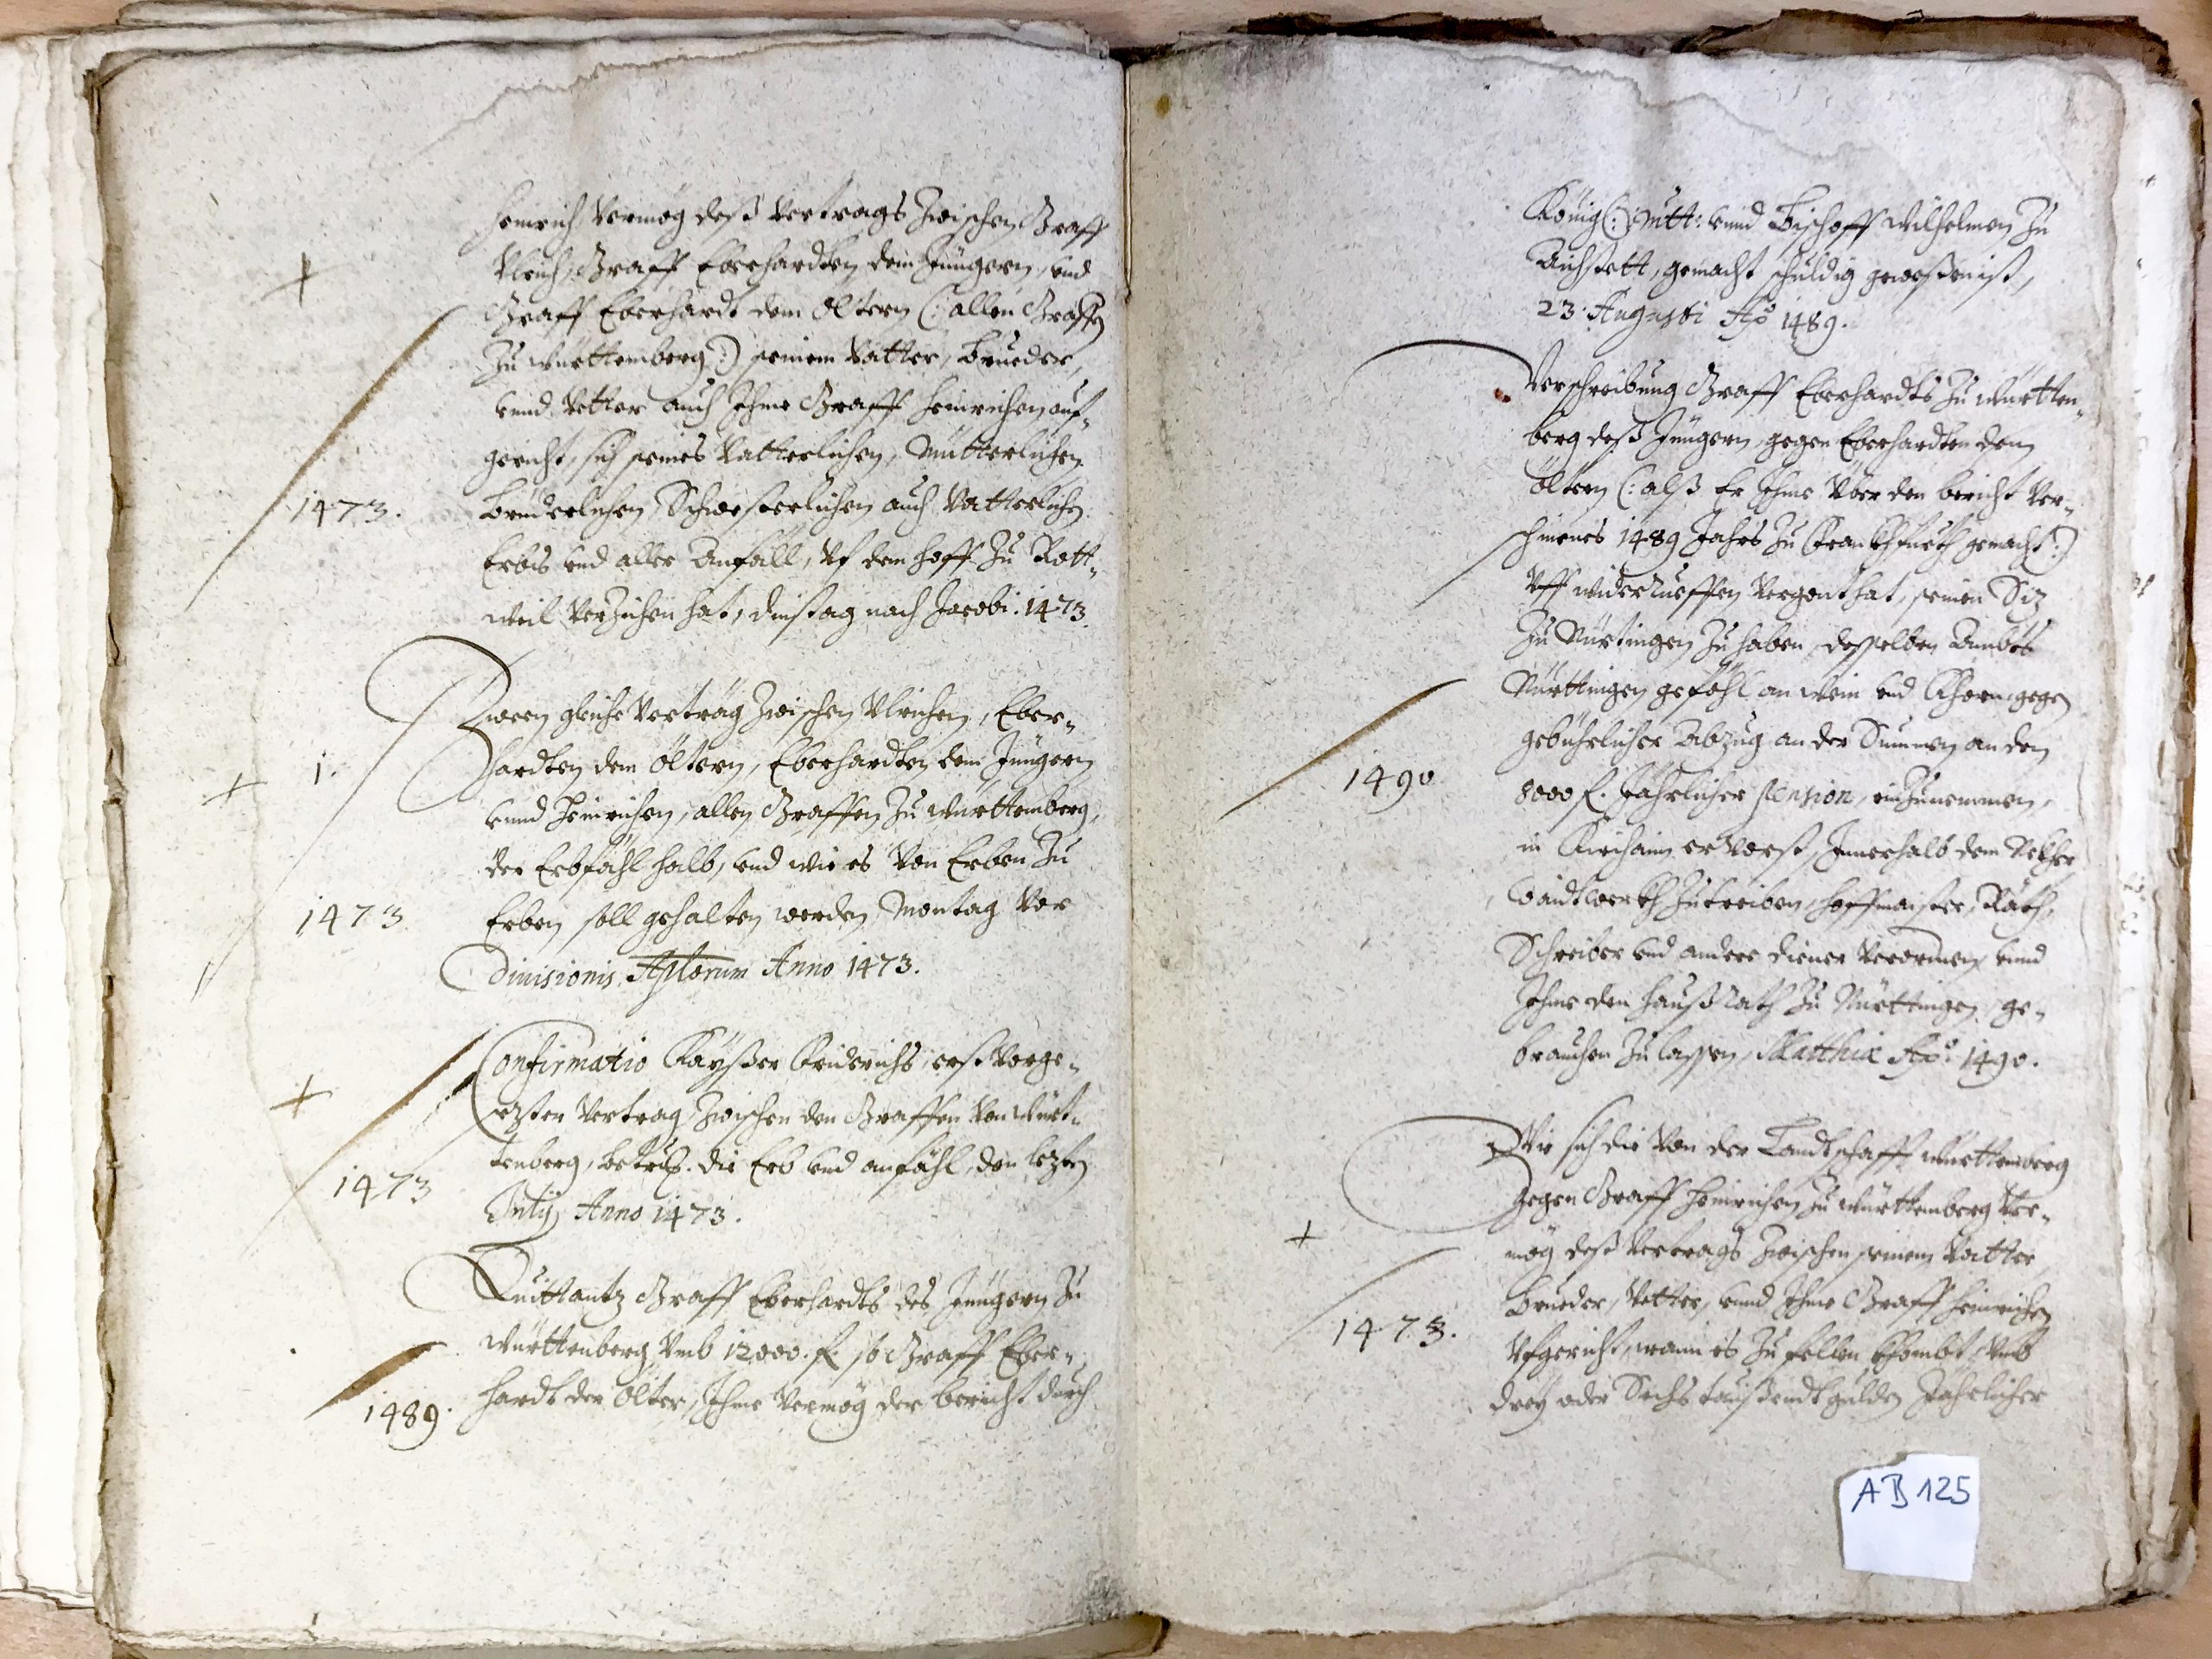 Heinrich vermög deß vertrags zwischen Graff
Ulrich, Graff Eberhardten dem Jüngern, und
Graff Eberhardt dem Öltern (: allen Graffen
zu Württemberg :) seinem Vatter, Brueder,
unnd Vetter auch Ihme Graff Heinrichen auf„
gericht, sich seines Vatterlichen, Mütterlichen
1473.
Brüderlichen Schwesterlichen auch Vätterlichen
Erbs und aller Anfäll, uf dem Hoff zu Rott„
weil verzichen hat, Dinstag nach Jacobi. 1473.
Zween gleiche Verträg zwischen Ulrichen, Eber„
1.
hardten dem Öltern, Eberhardten dem Jüngern
unnd Heinrichen, allen Graffen zu Württemberg,
der Erbfähl halb, und wie es von Erben zu
1473.
Erben soll gehalten werden, Montag vor
Divisionis Aplorum Anno 1473.
Confirmatio Kayßer Friderichs, erst vorge„
sezten Vertrag zwischen den Graffen von Würt„
tenberg, betreff. die Erb und anfähl, den lezten
1473
July Anno 1473.
Quittantz Graff Eberhardts des Jüngern zu
Württenberg umb 12000. f. so Graff Eber„
1489.
hardt der Ölter, Ihme vermög der bericht durch
König(:) Mtt: unnd Bischoff Wilhelmen zu
Aichstett, gemacht schuldig geweßen ist,
23. Augusti Ao 1489.
Verschreibung Graff Eberhardts zu Württen„
berg deß Jüngern, gegen Eberhardten dem
Öltern (: alß Er Ihme über den bericht ver„
schinens 1489 Jahrs zu Franckhfurth gemacht :)
uff widerrueffen vergont hat, seinen Siz
zu Nürtingen zu haben, desselben Ambts
Nürttingen gefähl an Wein und Khorn gegen
gebührlicher Abzug an der Summen an den
1490
8000 f. Jährlicher pension, einzunemmen,
in Kirchaim er Vorst, Innerhalb dem Nekher
Waidtwerkh zutreiben, Hoffmaister, Räth,
Schreiber und andere diener unnd
Ihme den Haußrath zu Nürttingen, ge„
brauchen zu lassen, Matthiæ Ao. 1490.
Wie sich die von der Landtschafft Württemberg
gegen Graff Heinrichen zu Württemberg ver„
mög deß Vertrags zwischen seinem Vatter
Brueder, Vetter, unnd Ihme Graff Heinrichen
1473.
ufgericht, wann es zu fellen khombt, umb
drey oder Sechs taußendt gulden Jährlicher
AB 125